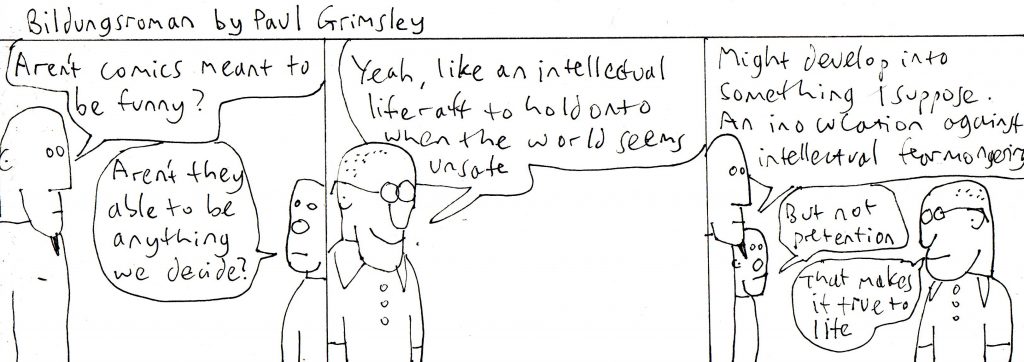 Bildungsroman by Paul Grimsley
Aren't comics meant to
be funny?
Aren't they
able to be
anything
we decide?
Yeah, like an intellectual
liferaft to hold onto
when the world seems
unsafe
Might develop into
something I suppose.
An inoculation against
intellectual fearmongering
But not
pretention
That makes
it true to
life